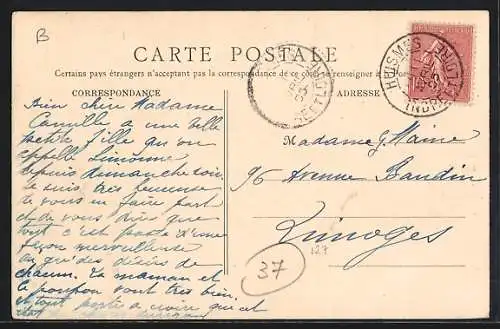 B
CARTE POSTALE
Certains pays étrangers n'acceptant pas la correspondance de ce côté se renseigner à la
CORRESPONDANCE
ADRESSE
HUISMES
INDRE
Bien chère Madame
Camille a une belle
petite fille qu'on
appelle Simonne
depuis dimanche soir
Je suis très heureuse
de vous en faire part
et de vous dire que
tout c'est passé d'une
façon merveilleuse
au gré des désirs de
chacun. La maman et
le poupon vont très bien.
et tout porte à croire que cet
Madame G.
96 Avenue Baudin
Limoges
127
37